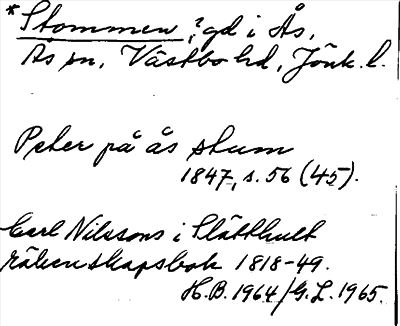 *Stommen, ? gd i Ås,
Ås sn, Västbo hd, Jönk. l.
Peter på ås stum
1847, s. 56 (45).
Carl Nilssons i Slätthult
räkenskapsbok 1818-49.
H.B. 1964/G.L. 1965.